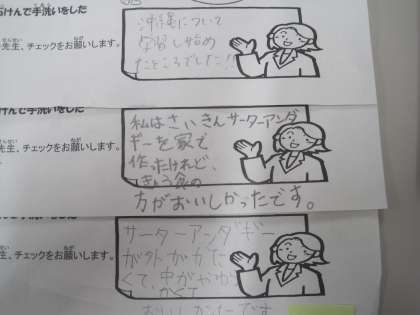 石けんで手洗いをした
先生、チェックをお願いします。
沖縄について
学習し始め
たところでした!!
けんで手洗いをした
先生、チェックをお願いします。
私はさいきんサーターアンダ
ギーを家で
作ったけれど、
きゅう食の
方がおいしかったです。
生、チェックをお願いします。
サーターアンダギー
が外がカリ
くて、中がやわら
かくて
おいしかったです